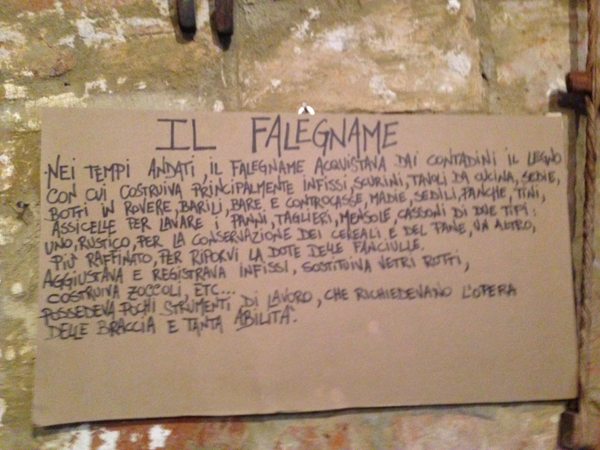 IL FALEGNAME
NEI TEMPI ANDATI, IL FALEGNAME ACQUISTAVA DAI CONTADINI IL LEGNO
CON CUI COSTRUIVA PRINCIPALMENTE INFISSI, SCURINI, TAVOLI DA CUCINA, SEDIE,
BOTTI IN ROVERE, BARILI, BARE E CONTROCASSE, MADIE, SEDILI, PANCHE, TINI,
ASSICELLE PER LAVARE I PANNI, TAGLIERI, MENSOLE, CASSONI DI DUE TIPI:
UNO, RUSTICO, PER LA CONSERVAZIONE DEI CEREALI E DEL PANE, UN ALTRO,
PIU' RAFFINATO, PER RIPORVI LA DOTE DELLE FANCIULLE.
AGGIUSTAVA E REGISTRAVA INFISSI, SOSTITUIVA VETRI ROTTI,
COSTRUIVA ZOCCOLI, ETC...
POSSEDEVA POCHI STRUMENTI DI LAVORO, CHE RICHIEDEVANO L'OPERA
DELLE BRACCIA E TANTA ABILITA'.